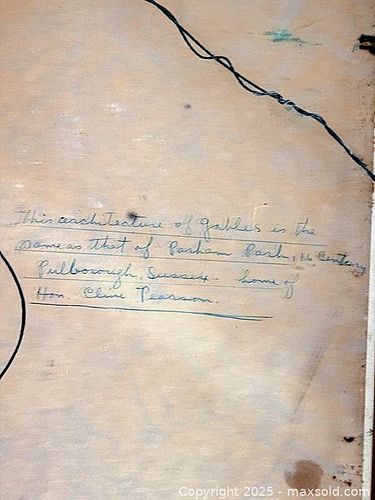 This architecture of gables is the
same as that of Parham Park, 16 Century
Pulborough, Sussex - home of
Hon. Clive Pearson.
Copyright 2025 - maxsold.com